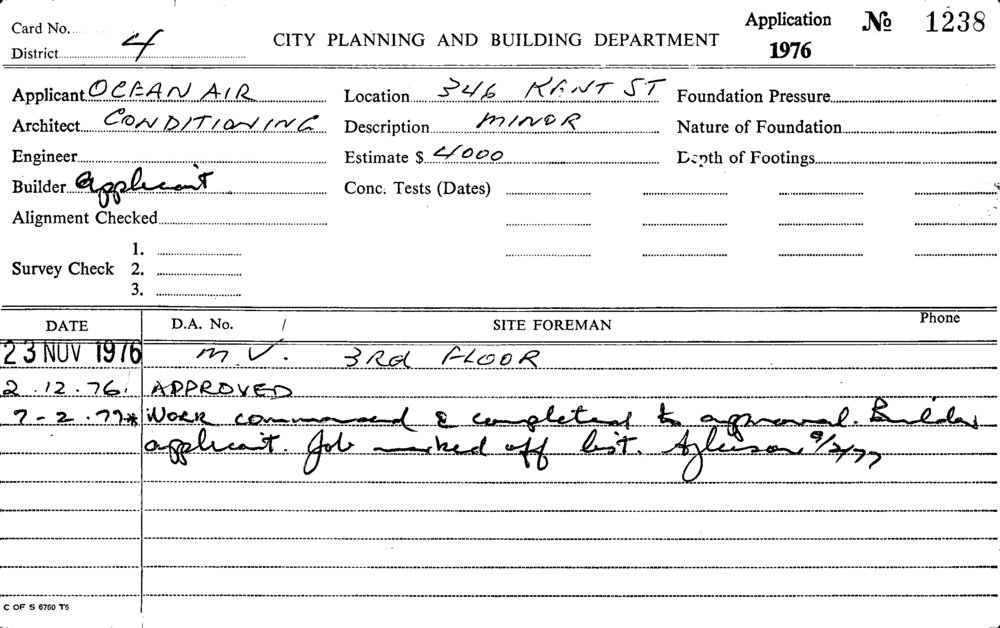 Card No.
District 4
CITY PLANNING AND BUILDING DEPARTMENT
Application 1976
№ 1238
Applicant OCEAN AIR
Location 346 KENT ST
Foundation Pressure
Architect CONDITIONING
Description MINOR
Nature of Foundation
Engineer
Estimate $ 4000
Depth of Footings
Builder applicant
Conc. Tests (Dates)
Alignment Checked
Survey Check
1.
2.
3.
DATE D.A. No. / SITE FOREMAN Phone
23 NOV 1976 M.V. 3RD FLOOR
2.12.76. APPROVED
7-2.77* Work commenced & completed to approval. Builder
applicant. Job marked off list. 9/2/77
C OF S 6760 T6